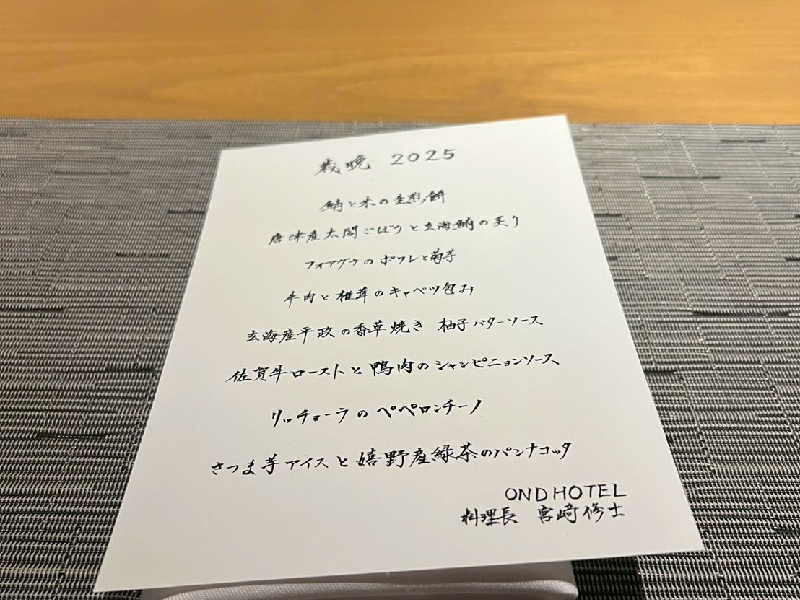 歳晩 2025
鯖と米の
唐津産太閤ごぼうと玄海鯖の炙り
フォアグラのポワレと菊芋
牛肉と椎茸のキャベツ包み
玄海産平政の香草焼き 柚子バターソース
佐賀牛ローストと鴨肉のシャンピニョンソース
リッチョーラのペペロンチーノ
さつま芋アイスと嬉野産緑茶のパンナコッタ
OND HOTEL
料理長 宮﨑修士